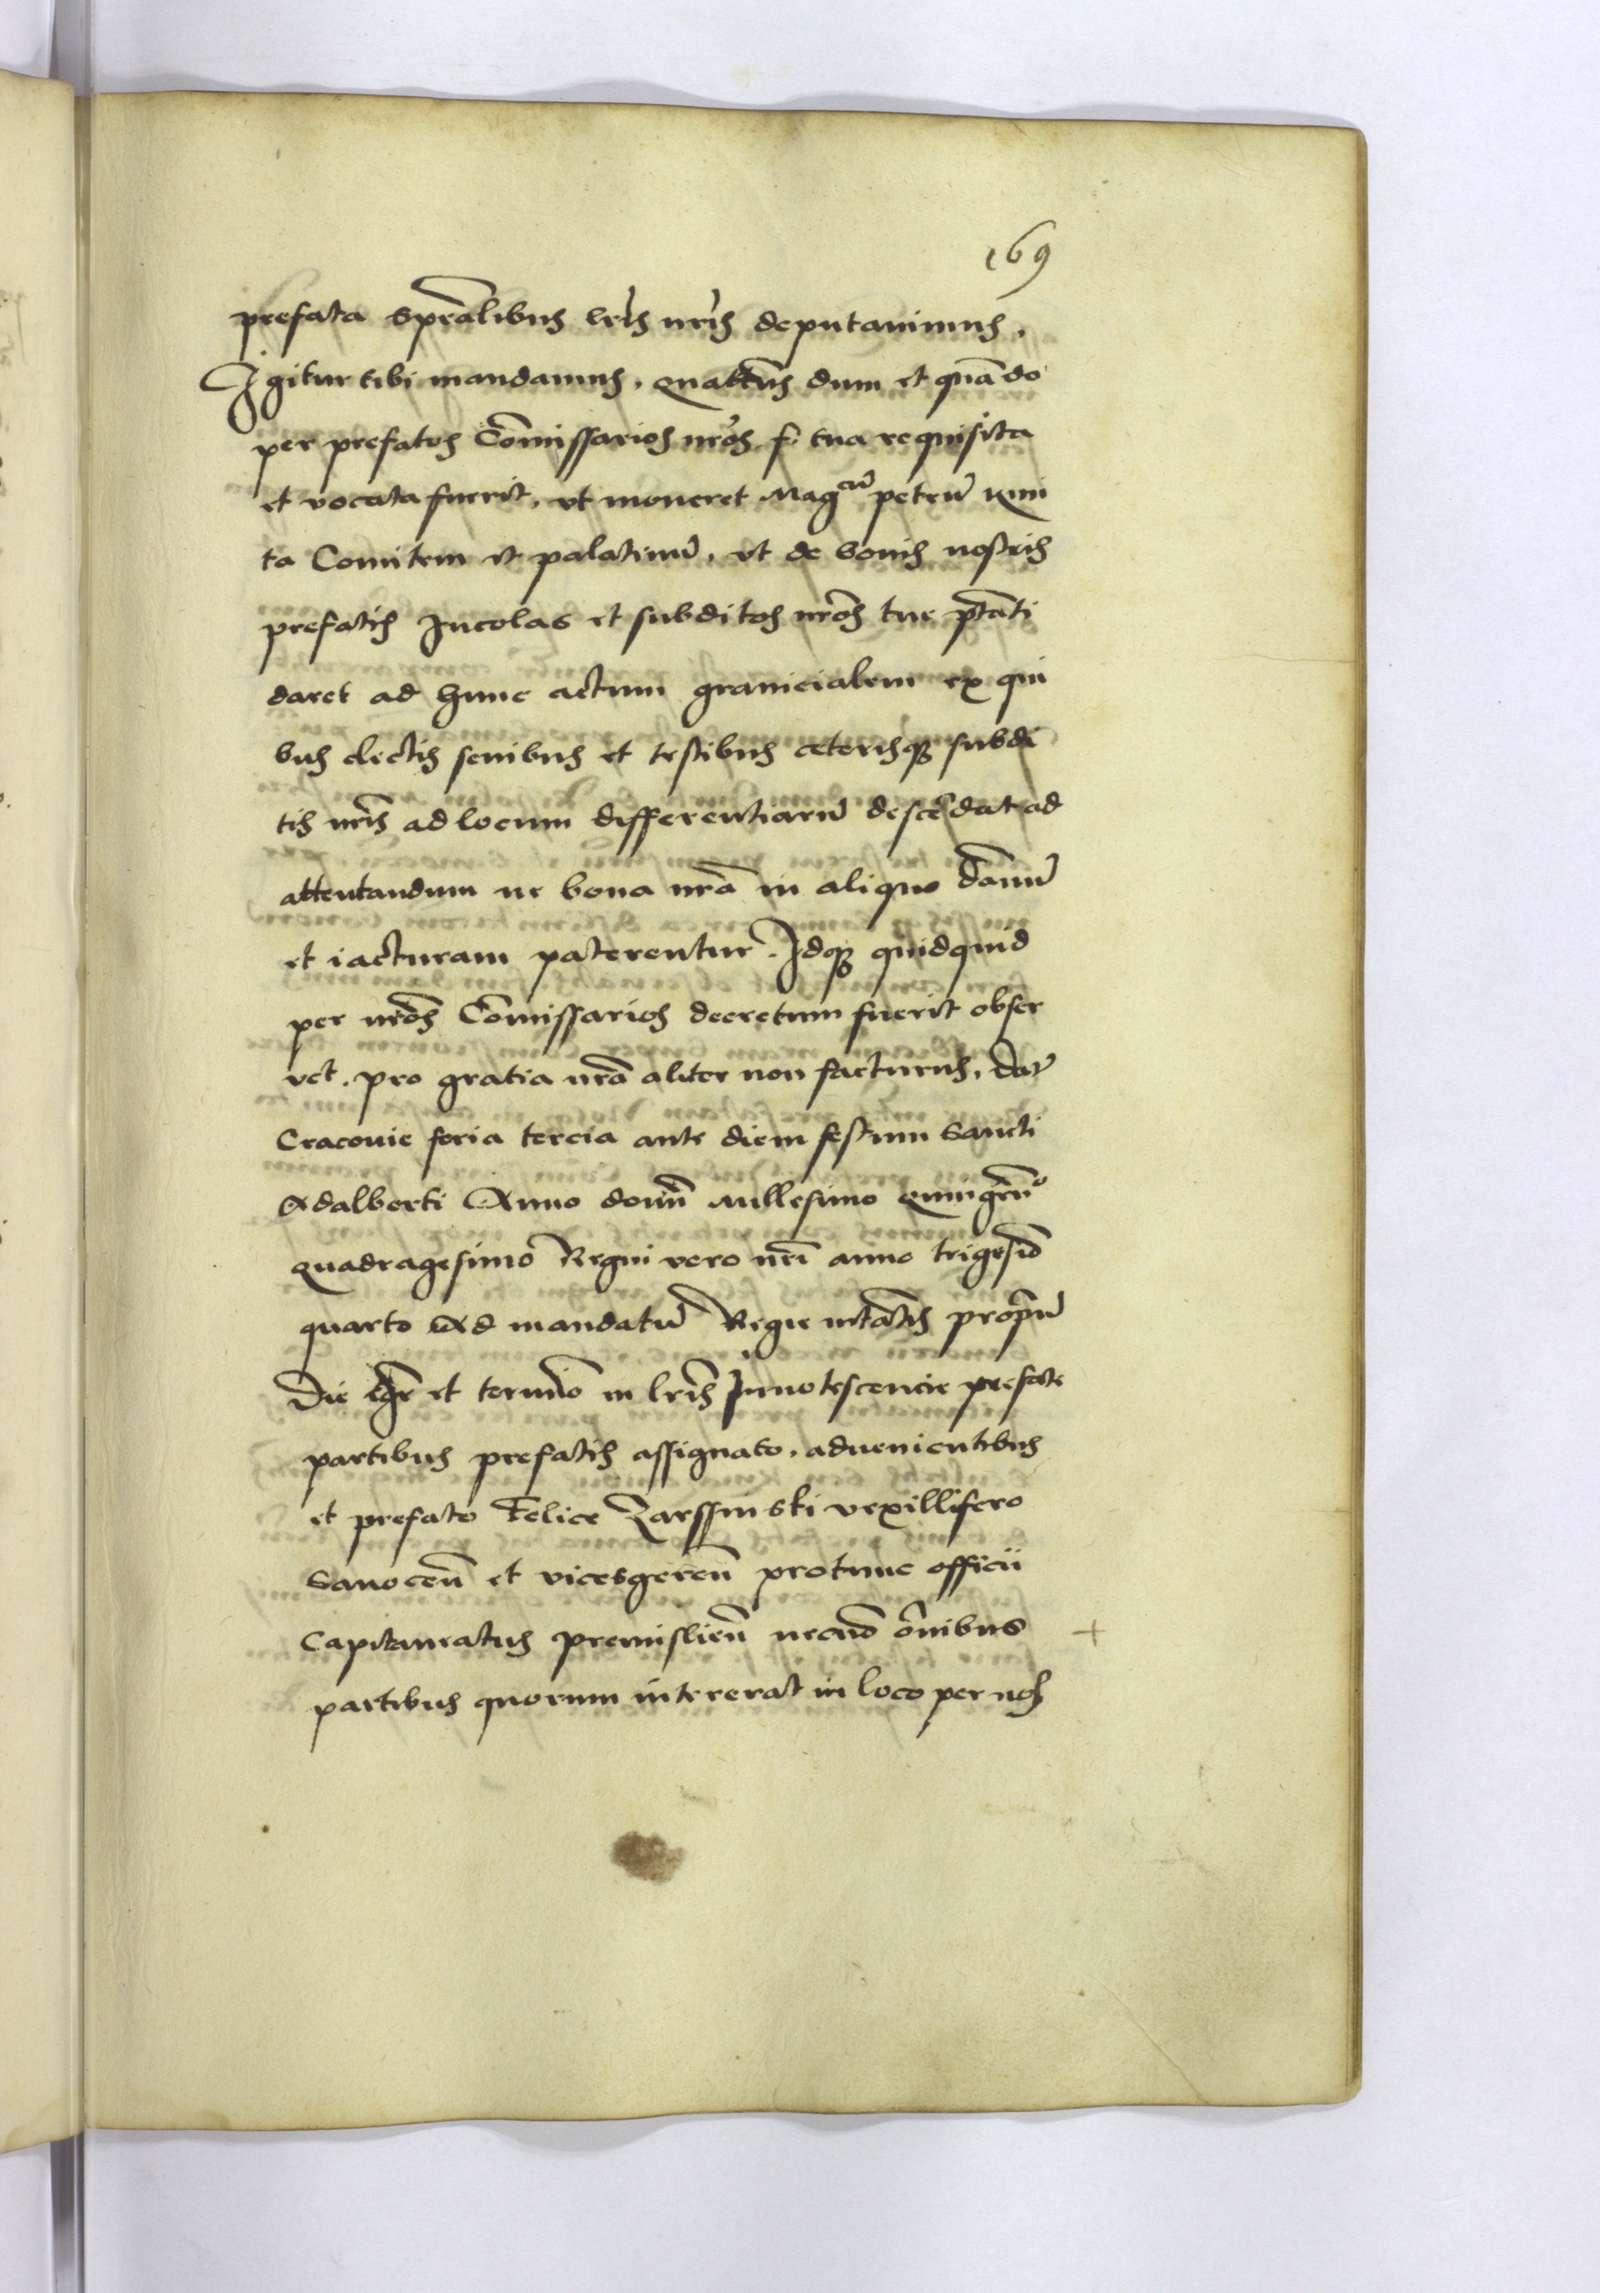 169
prefata sp̄cialibus lr̄is nr̄is deputauimus.
Igitur tibi mandamus, quaten̄s dum et quā do
per prefatos Com̄issarios nr̄os f. tua requisita
et vocata fuerit, vt moneret Magcū petrū Kmi
ta Comitem et palatinū, vt de bonis nostris
prefatis Incolas et subditos nr̄os tue p̄tati
daret ad hunc actum granicialem ex qui
bus electis senibus et testibus ceterisq; subdi
tis nr̄is ad locum differentiarū descēdat ad
attentandum ne bona nr̄a in aliquo dam̄ū
et iacturam paterentur. Idq; quidquid
per nr̄os Com̄issarios decretum fuerit obser
vet. pro gratia nr̄a aliter non facturus, Dat̄
Cracouie feria tercia ante diem festum Sancti
Adalberti Anno domi̅ Millesimo Quingen̄o
quadragesimo Regni vero nr̄i anno trigesīo
quarto Ad mandatū Regie mtātis propriū
Die et termīo in lr̄is Innotescencie prefate
partibus prefatis assignato, aduenientibus
et prefato Felice Zarssinski vexillifero
Sanocen̄ et vicesgeren̄ protunc officii
Capitaneatus premislien̄ necnō om̄ibus
partibus quorum intererat in loco per nos